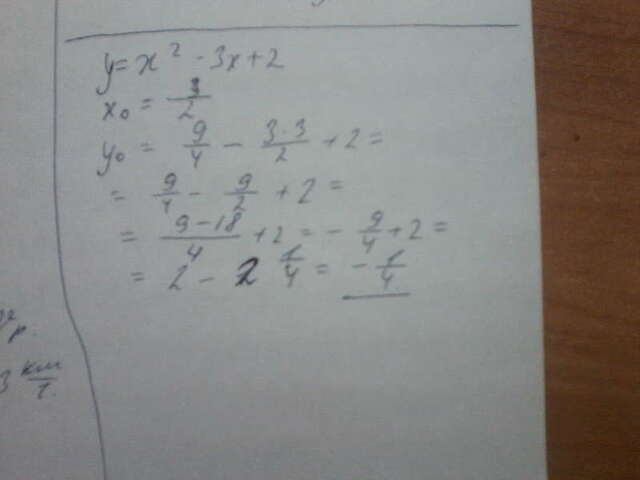 y = x² - 3x + 2
x₀ = 3/2
y₀ = 9/4 - 3·3/2 + 2 =
= 9/4 - 9/2 + 2 =
= 9-18/4 + 2 = - 9/4 + 2 =
= 2 - 2 1/4 = - 1/4
3 км/г.